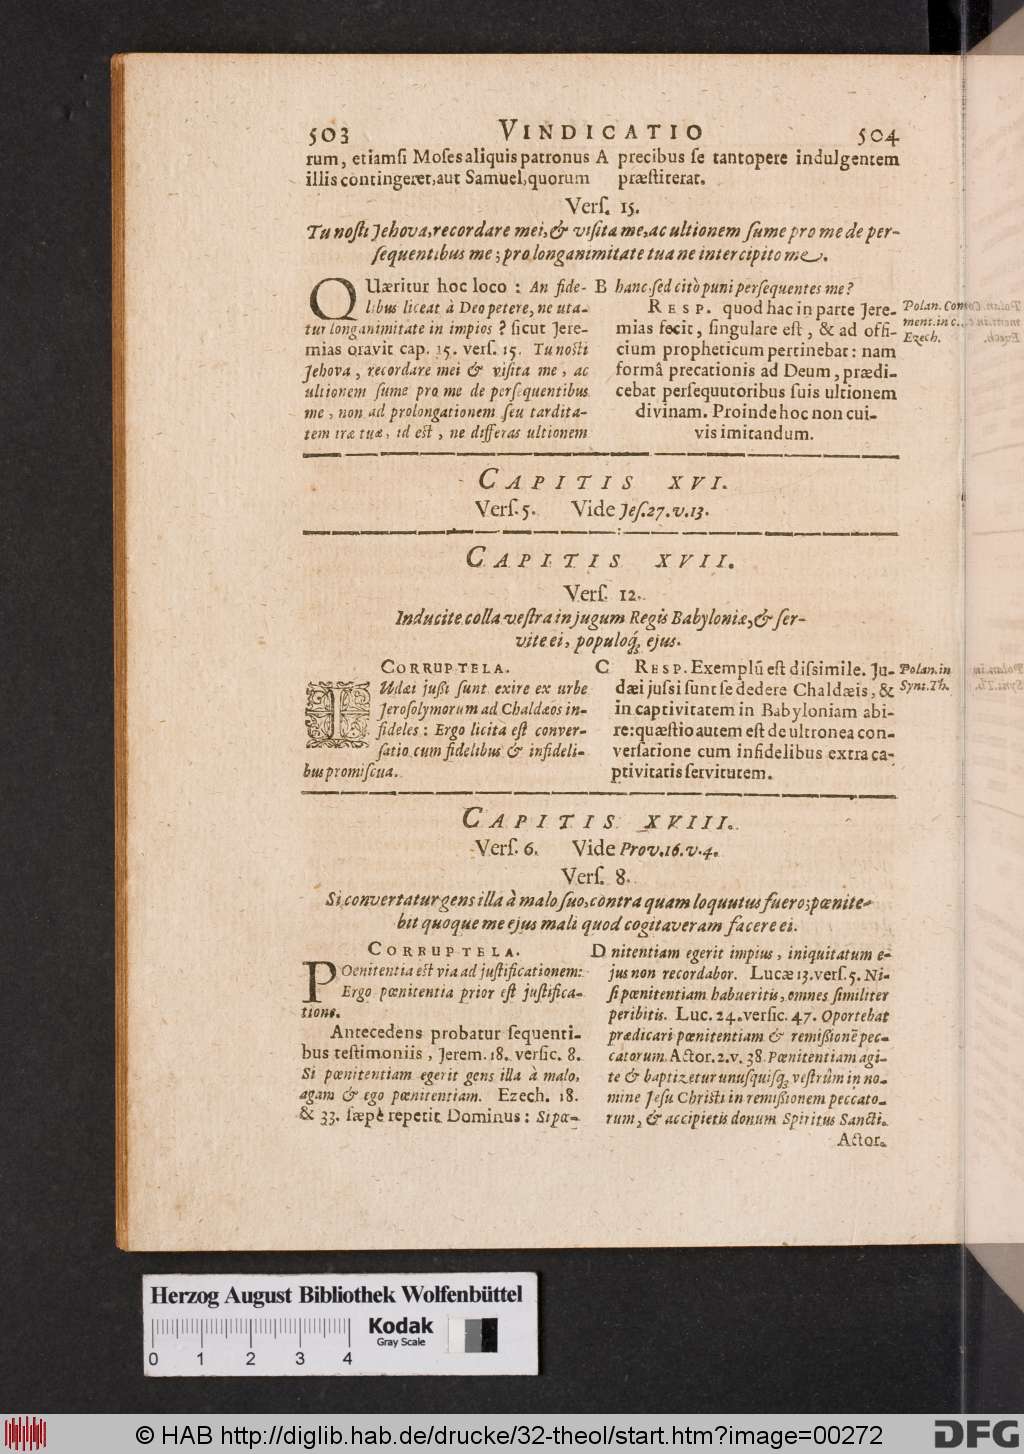 503 VINDICATIO 504
rum, etiamſi Moſes aliquis patronus A
illis contingeret, aut Samuel, quorum
precibus ſe tantopere indulgentem
præſtiterat.
Verſ. 15.
Tu noſti Jehova, recordare mei, & viſita me, ac ultionem ſume pro me de per-
ſequentibus me; pro longanimitate tua ne intercipito me.
QUæritur hoc loco: An fide-
libus liceat à Deo petere, ne uta-
tur longanimitate in impios? ſicut Jere-
mias oravit cap. 15. verſ. 15. Tu noſti
Jehova, recordare mei & viſita me, ac
ultionem ſume pro me de perſequentibus
me, non ad prolongationem ſeu tardita-
tem iræ tuæ, id eſt, ne differas ultionem
B hanc, ſed citò puni perſequentes me?
RESP. quod hac in parte Jere-
mias fecit, ſingulare eſt, & ad offi-
cium propheticum pertinebat: nam
formâ precationis ad Deum, prædi-
cebat perſequutoribus ſuis ultionem
divinam. Proinde hoc non cui-
vis imitandum.
Polan. Com
ment. in c.
Ezech.
CAPITIS XVI.
Verſ. 5. Vide Jeſ. 27. v. 13.
CAPITIS XVII.
Verſ. 12.
Inducite colla veſtra in jugum Regis Babyloniæ, & ſer-
vite ei, populoq́; ejus.
CORRUPTELA.
IUdæi juſſi ſunt exire ex urbe
Jeroſolymorum ad Chaldæos in-
fideles: Ergo licita eſt conver-
ſatio cum fidelibus & infideli-
bus promiſcua.
C RESP. Exemplũ eſt diſsimile. Ju-
dæi juſsi ſunt ſe dedere Chaldæis, &
in captivitatem in Babyloniam abi-
re: quæſtio autem eſt de ultronea con-
verſatione cum infidelibus extra ca-
ptivitatis ſervitutem.
Polan. in
Synt. Th.
CAPITIS XVIII.
Verſ. 6. Vide Prov. 16. v. 4.
Verſ. 8.
Si convertatur gens illa à malo ſuo, contra quam loquutus fuero; pœnite-
bit quoque me ejus mali quod cogitaveram facere ei.
CORRUPTELA.
POenitentia eſt via ad juſtificationem:
Ergo pœnitentia prior eſt juſtifica-
tione.
Antecedens probatur ſequenti-
bus teſtimoniis, Jerem. 18. verſic. 8.
Si pœnitentiam egerit gens illa à malo,
agam & ego pœnitentiam. Ezech. 18.
& 33. ſæpè repetit Dominus: Si pœ-
D nitentiam egerit impius, iniquitatum e-
jus non recordabor. Lucæ 13. verſ. 5. Ni-
ſi pœnitentiam habueritis, omnes ſimiliter
peribitis. Luc. 24. verſic. 47. Oportebat
prædicari pœnitentiam & remiſſionẽ pec-
catorum. Actor. 2. v. 38. Pœnitentiam agi-
te & baptizetur unuſquiſq; veſtrûm in no-
mine Jeſu Chriſti in remiſſionem peccato-
rum, & accipietis donum Spiritus Sancti.
Actor.
Herzog August Bibliothek Wolfenbüttel
Kodak
Gray Scale
0 1 2 3 4
© HAB http://diglib.hab.de/drucke/32-theol/start.htm?image=00272
DFG